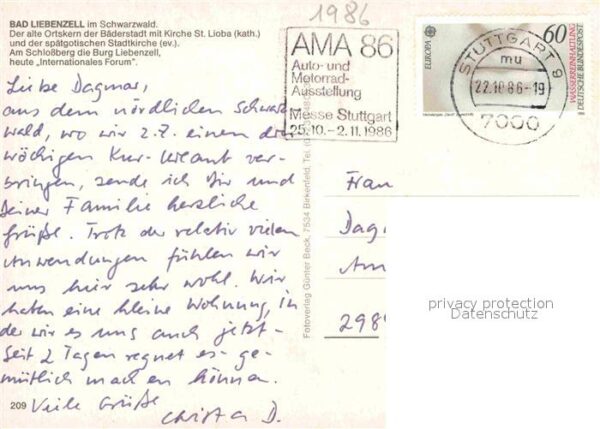 1986
BAD LIEBENZELL im Schwarzwald.
Der alte Ortskern der Bäderstadt mit Kirche St. Lioba (kath.)
und der spätgotischen Stadtkirche (ev.)
Am Schloßberg die Burg Liebenzell,
heute „Internationales Forum".
AMA 86
Auto- und
Motorrad-
Ausstellung
Messe Stuttgart
25.10.-2.11.1986
EUROPA
60
WASSERREINHALTUNG
DEUTSCHE BUNDESPOST
STUTTGART 9
mu
22.10.86-19
7000
Liebe Dagmar,
aus dem nördlichen Schwarz-
wald, wo wir z.Z. einen drei
wöchigen Kur-Urlaub ver-
bringen, sende ich Dir und
Deiner Familie herzliche
Grüße. Trotz der relativ vielen
Anwendungen fühlen wir
uns hier sehr wohl. Wir
haben eine kleine Wohnung, in
der wir es uns auch jetzt-
seit 2 Tagen regnet es- ge-
mütlich machen können.
Viele Grüße
Christa D.
209
Fotoverlag Günter Beck, 7534 Birkenfeld, Tel.
Frau
Dag
Am
298
privacy protection
Datenschutz